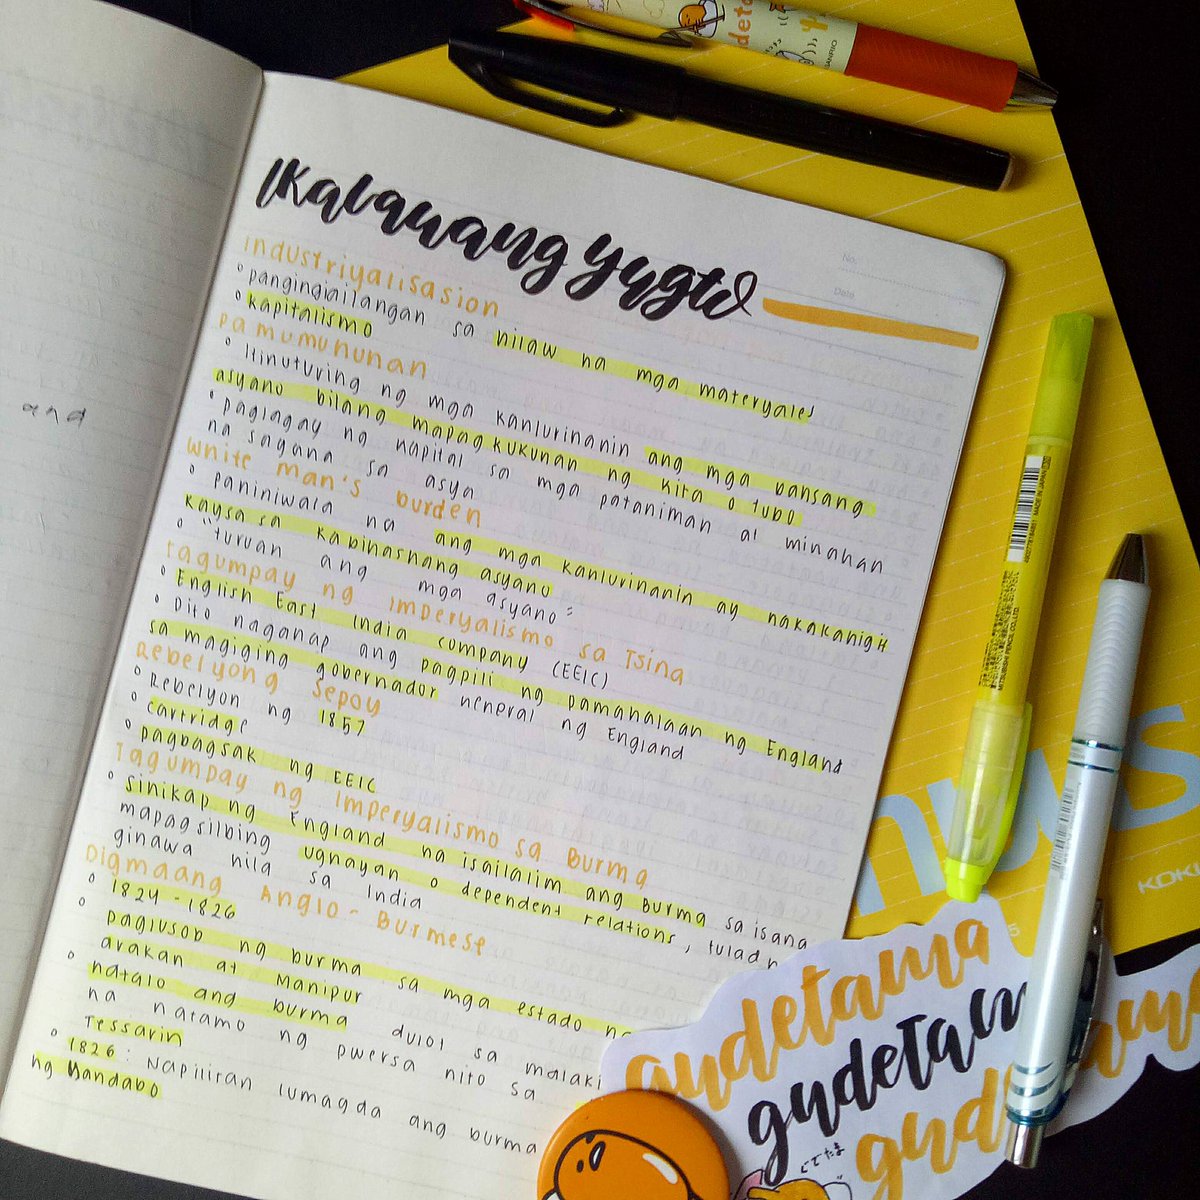 Ikalawang Yugto
No.
Date
industriyalisasion
pangingiailangan sa nilaw na mga materyales
kapitalismo
pamumuhunan
Itinuturing ng mga kanlurinanin ang mga bansang
asyano bilang mapagkukunan ng kita o tubo
paglagay ng kapital sa mga pataniman at minahan
na sagana sa asya
white man's burden
paniniwala na ang mga kanlurinanin ay nakakahigit
kaysa sa kabihasnang asyano
"turuan ang mga asyano"
tagumpay ng imperyalismo sa Tsina
English East India company (EEIC)
Dito naganap ang pagpili ng pamahalaan ng England
sa magiging gobernador heneral ng England
Rebelyong Sepoy
Rebelyon ng 1857
cartridge
pagbagsak ng EEIC
Tagumpay ng imperyalismo sa Burma
Sinikap ng England na isailalim ang Burma sa isang
mapagsilbing ugnayan o dependent relations, tulad ng
ginawa nila sa India
Digmaang Anglo-Burmese
1824-1826
paglusob ng burma sa mga estado
arakan at Manipur
natalo ang burma dulot sa
na natamo ng pwersa nito sa
Tessarin
1826: Napilitan lumagda ang burma
ng Yandabo
and
gudetama
gudetam
gud
ama
ぐでたま
KOKU
MADE IN JAPAN
MITSUBISHI PENCIL CO.,LTD